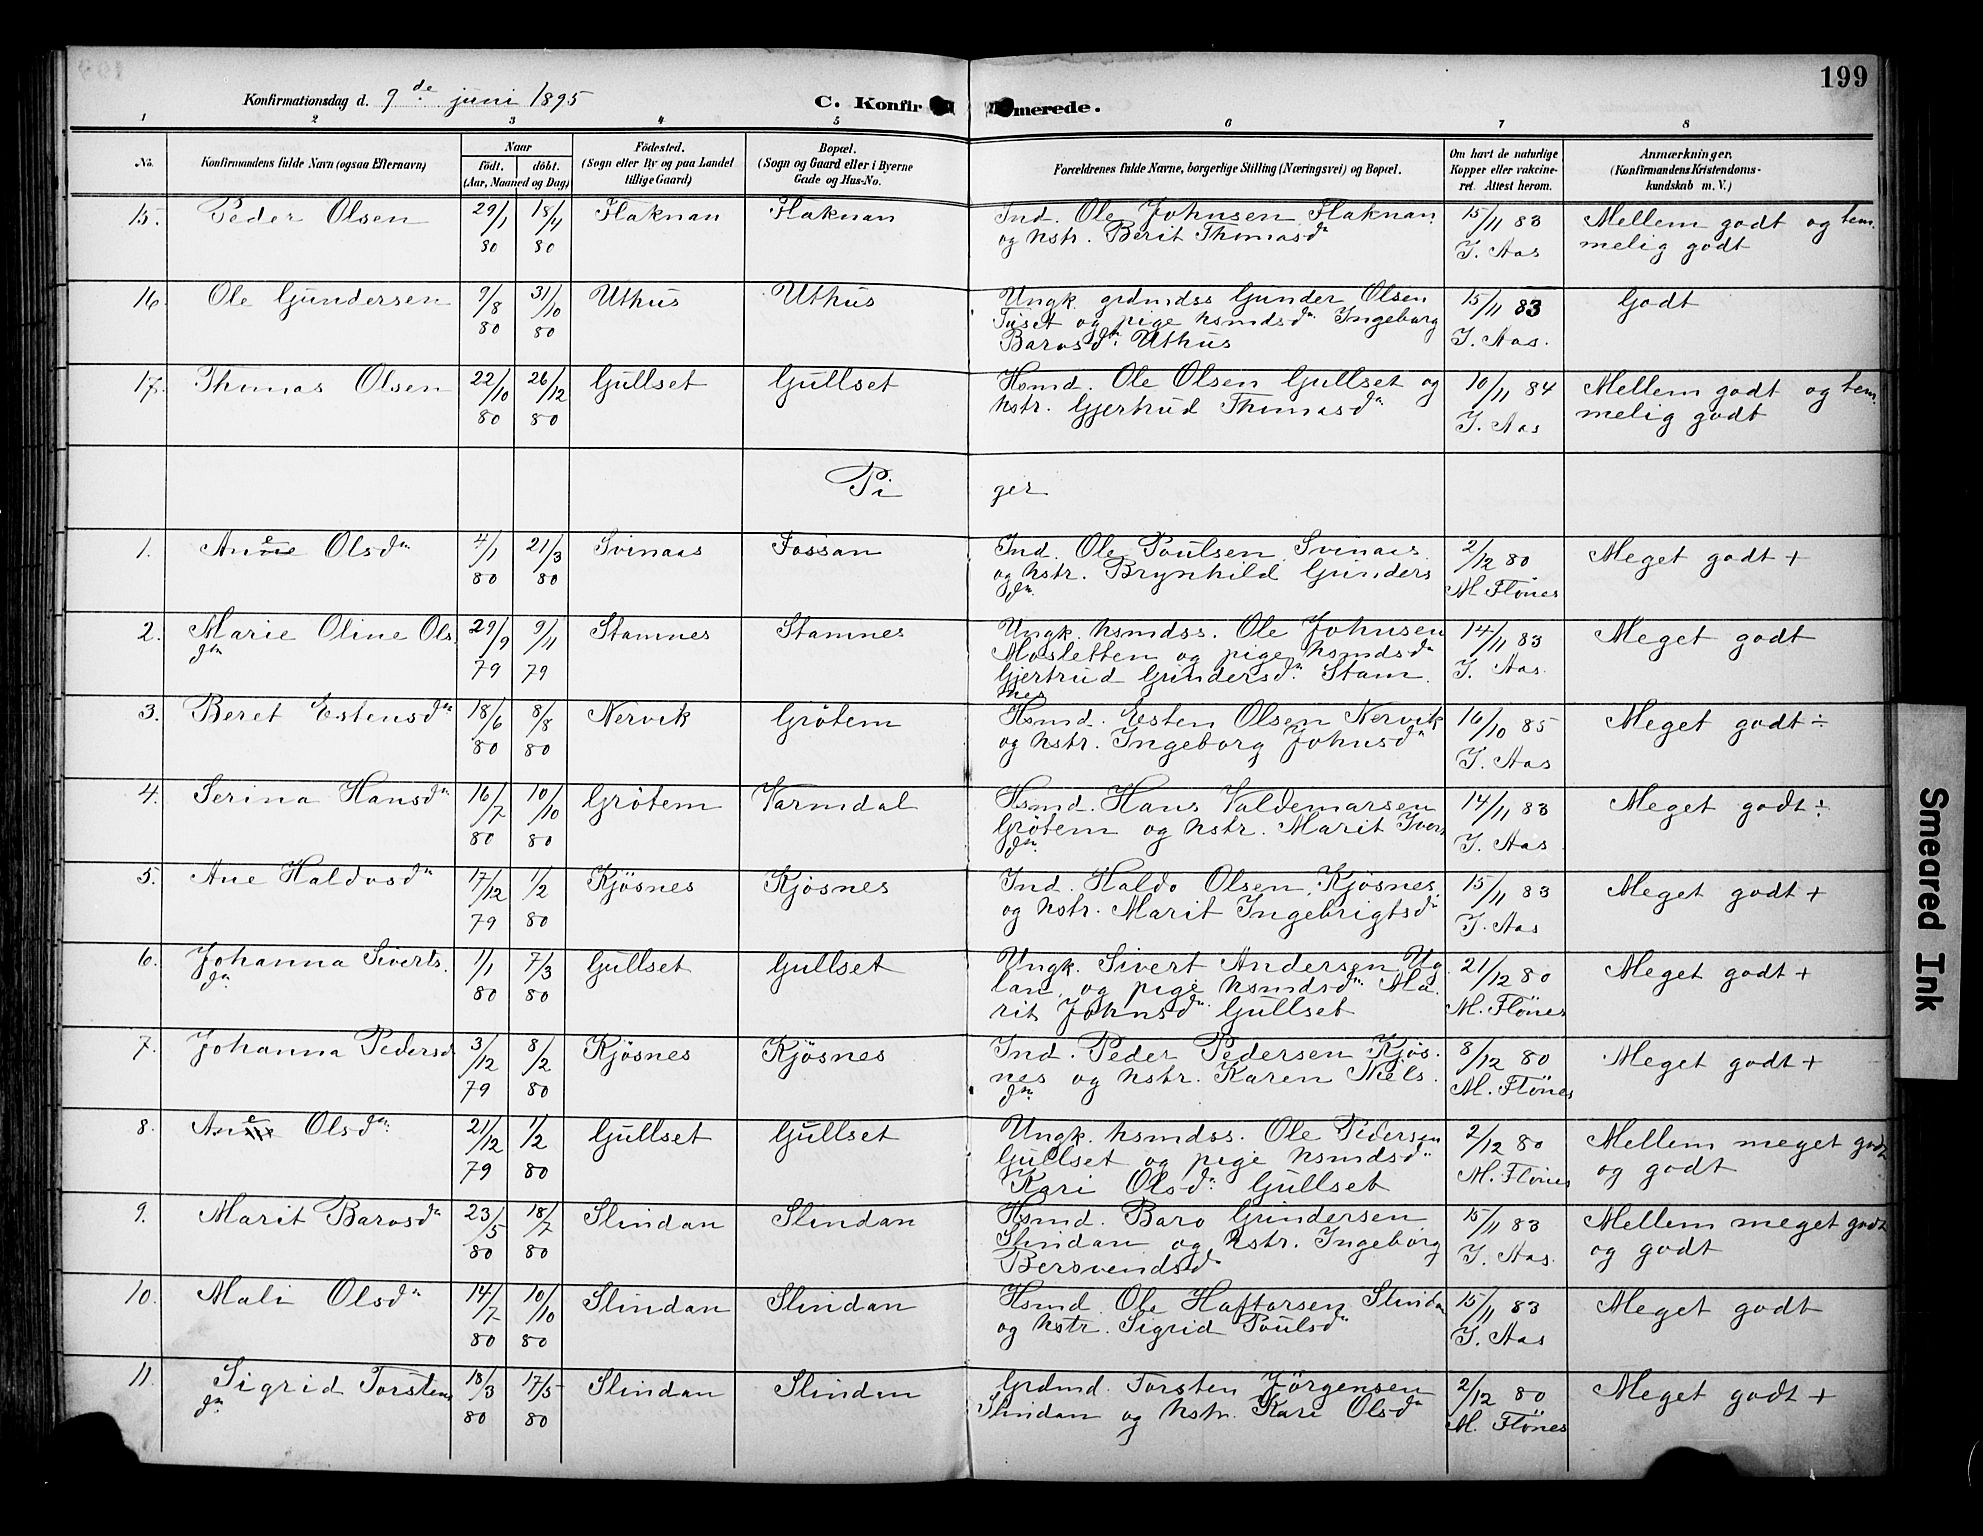 199
Konfirmationsdag d. 9de juni 1895
C. Konfir merede.
1 2 3 4 5 6 7 8
No. Konfirmandens fulde Navn (ogsaa Efternavn) Naar født. døbt. (Aar, Maaned og Dag) Födested. (Sogn eller By og paa Landet tillige Gaard) Bopæl. (Sogn og Gaard eller i Byerne Gade og Hus-No. Forældrenes fulde Navne, borgerlige Stilling (Næringsvei) og Bopæl. Om havt de naturlige Kopper eller vakcineret. Attest herom. Anmærkninger. (Konfirmandens Kristendomskundskab m. V.)
15. Peder Olsen 29/1 80 18/4 80 Flaknan Flaknan Ind. Ole Johnsen Flaknan 15/11 83 Mellem godt og tem
og kstr. Berit Thomasdn I. Aas melig godt
16. Ole Gundersen 9/8 80 31/10 80 Uthus Uthus Ungk. grdmdss Gunder Olsen 15/11 83 Godt
Tuset og pige hsmdsdn. Ingeborg I. Aas.
Barosdtr. Uthus
17. Thomas Olsen 22/10 80 26/12 80 Gullset Gullset Hsmd. Ole Olsen Gullset og 10/11 84 Mellem godt og tem
kstr. Gjertrud Thomasdn I. Aas melig godt
Pi ger
1. Ane Olsdn 4/1 80 21/3 80 Svinaas Fossan Ind. Ole Poulsen Svinaas 2/12 80 Meget godt +
og kstr. Brynhild Gunders M. Flönes
dn
2. Marie Oline Ols. 29/9 79 9/11 79 Stamnes Stamnes Ungk. hsmdss. Ole Johnsen 14/11 83 Meget godt
dtn Mosletten og pige hsmdsdn I. Aas.
Gjertrud Gundersdn. Stam
nes
3. Beret Estensdn 18/6 80 8/8 80 Nervik Grötem Hsmd. Esten Olsen Nervik 16/10 85 Meget godt ÷
og kstr. Ingeborg Johnsdn I. Aas
4. Serina Hansdn 16/7 80 10/10 80 Grötem Varmdal Hsmd. Hans Valdemarsen 14/11 83 Meget godt ÷
Grötem og kstr. Marit Ivers I. Aas
dn.
5. Ane Haldosdn 17/12 79 1/2 80 Kjösnes Kjösnes Ind. Haldo Olsen Kjösnes 15/11 83 Meget godt +
og kstr. Marit Ingebrigtsdn I. Aas
6. Johanna Siverts. 1/1 80 7/3 80 Gullset Gullset Ungk. Sivert Andersen Ug 21/12 80 Meget godt +
dn lan, og pige hsmdsdn Ma. M. Flönes
rit Johnsdn. Gullset
7. Johanna Pedersd 3/12 79 8/2 80 Kjösnes Kjösnes Ind. Peder Pedersen Kjös. 8/12 80 Meget godt +
nes og kstr. Karen Niels. M. Flönes
dn
8. Ane Olsdn. 21/12 79 1/2 80 Gullset Gullset Ungk. hsmdss. Ole Pedersen 2/12 80 Mellem meget godt
Gullset og pige hsmdsdn M. Flönes og godt
Kari Olsdn. Gullset
9. Marit Barosdn 23/5 80 18/7 80 Slindan Slindan Hsmd. Baro Gundersen 15/11 83 Mellem meget godt
Slindan og kstr. Ingeborg I. Aas. og godt
Bersvendsdn
10. Mali Olsdn 14/7 80 10/10 80 Slindan Slindan Hsmd. Ole Haftorsen Slindan 15/11 83 Meget godt
og kstr. Sigrid Poulsdn I. Aas
11. Sigrid Torstens 18/3 80 17/5 80 Slindan Slindan Grdmd. Torsten Jörgensen 2/12 80 Meget godt +
dn Slindan og kstr. Kari Olsdn M. Flönes
Smeared Ink